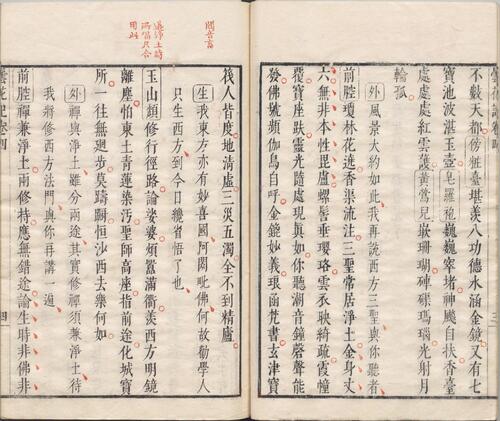 不穀天都傍粧臺堪羡八功德水涵金鏡又有七
寶池波湛玉壺皂羅袍巍巍窣堵神颷自扶香臺
處處處紅雲䕶黃鶯兒嵌珊瑚硨磲瑪瑙光射月
輪孤
外風景大約如此我再說西方三聖與你聽者
前腔瓊林花遶香渠流注三聖常居淨土金身丈
六無非本性毘盧螺髻垂瓔珞雲衣映綺疏霞幢
覆寶座趺靈光隨處現真如你聽潮音鐘磬聲能
發佛號頻伽鳥自呼金鏡妙義琅函梵書玄津寶
筏人皆度地清虛三災五濁全不到精廬
生我東方亦有妙喜國阿閦毗佛何故勸學人
只生西方到今日纔省悟了也
玉山頹修行徑路論娑婆煩囂滿衢羨西方明鏡
離塵怕東土青蓮染汚聖師高座指前途化城寶
所一往無廻步莫躊躇恒沙西去樂何如
外禪與淨土雖分兩途其實修禪須兼淨土待
我將修西方法門與你再講一遍
前腔禪兼淨土兩修持應無錯途論生時非佛非
四
閦音畜
用此